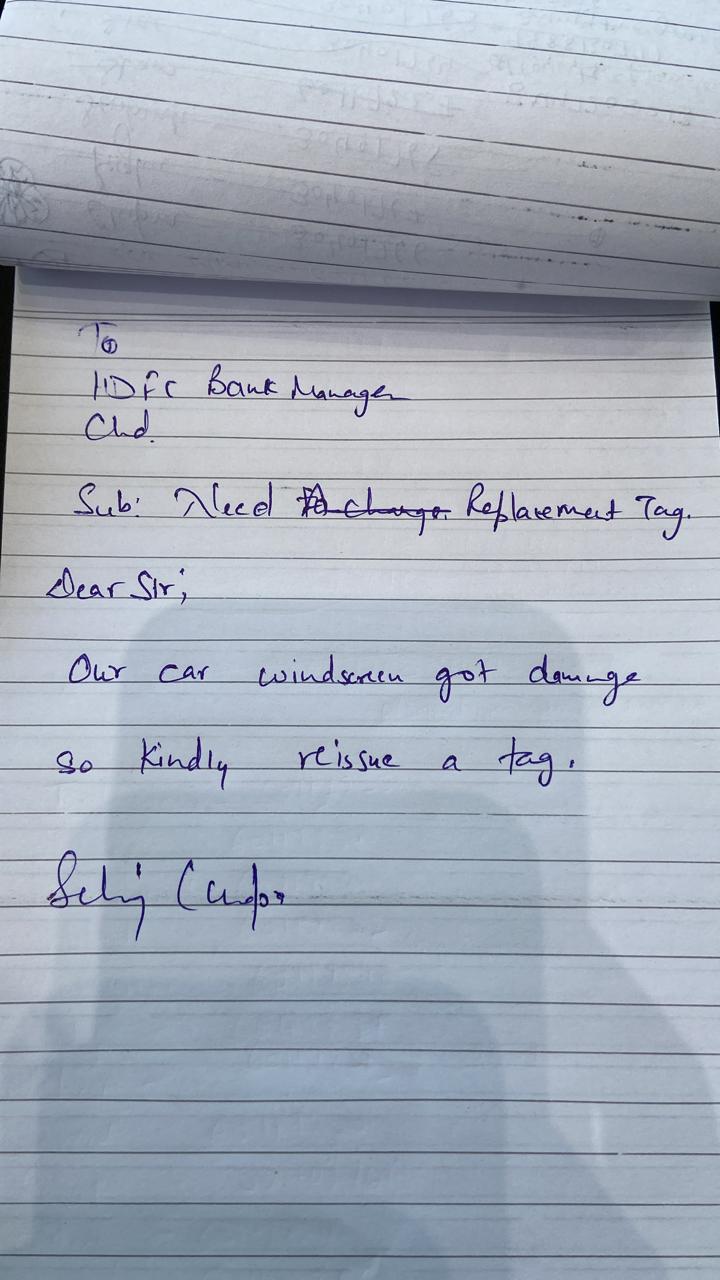 To
HDFC Bank Manager
Chd.
Sub: Need To change Replacement Tag.
Dear Sir;
Our car windscreen got damage
so kindly reissue a tag.